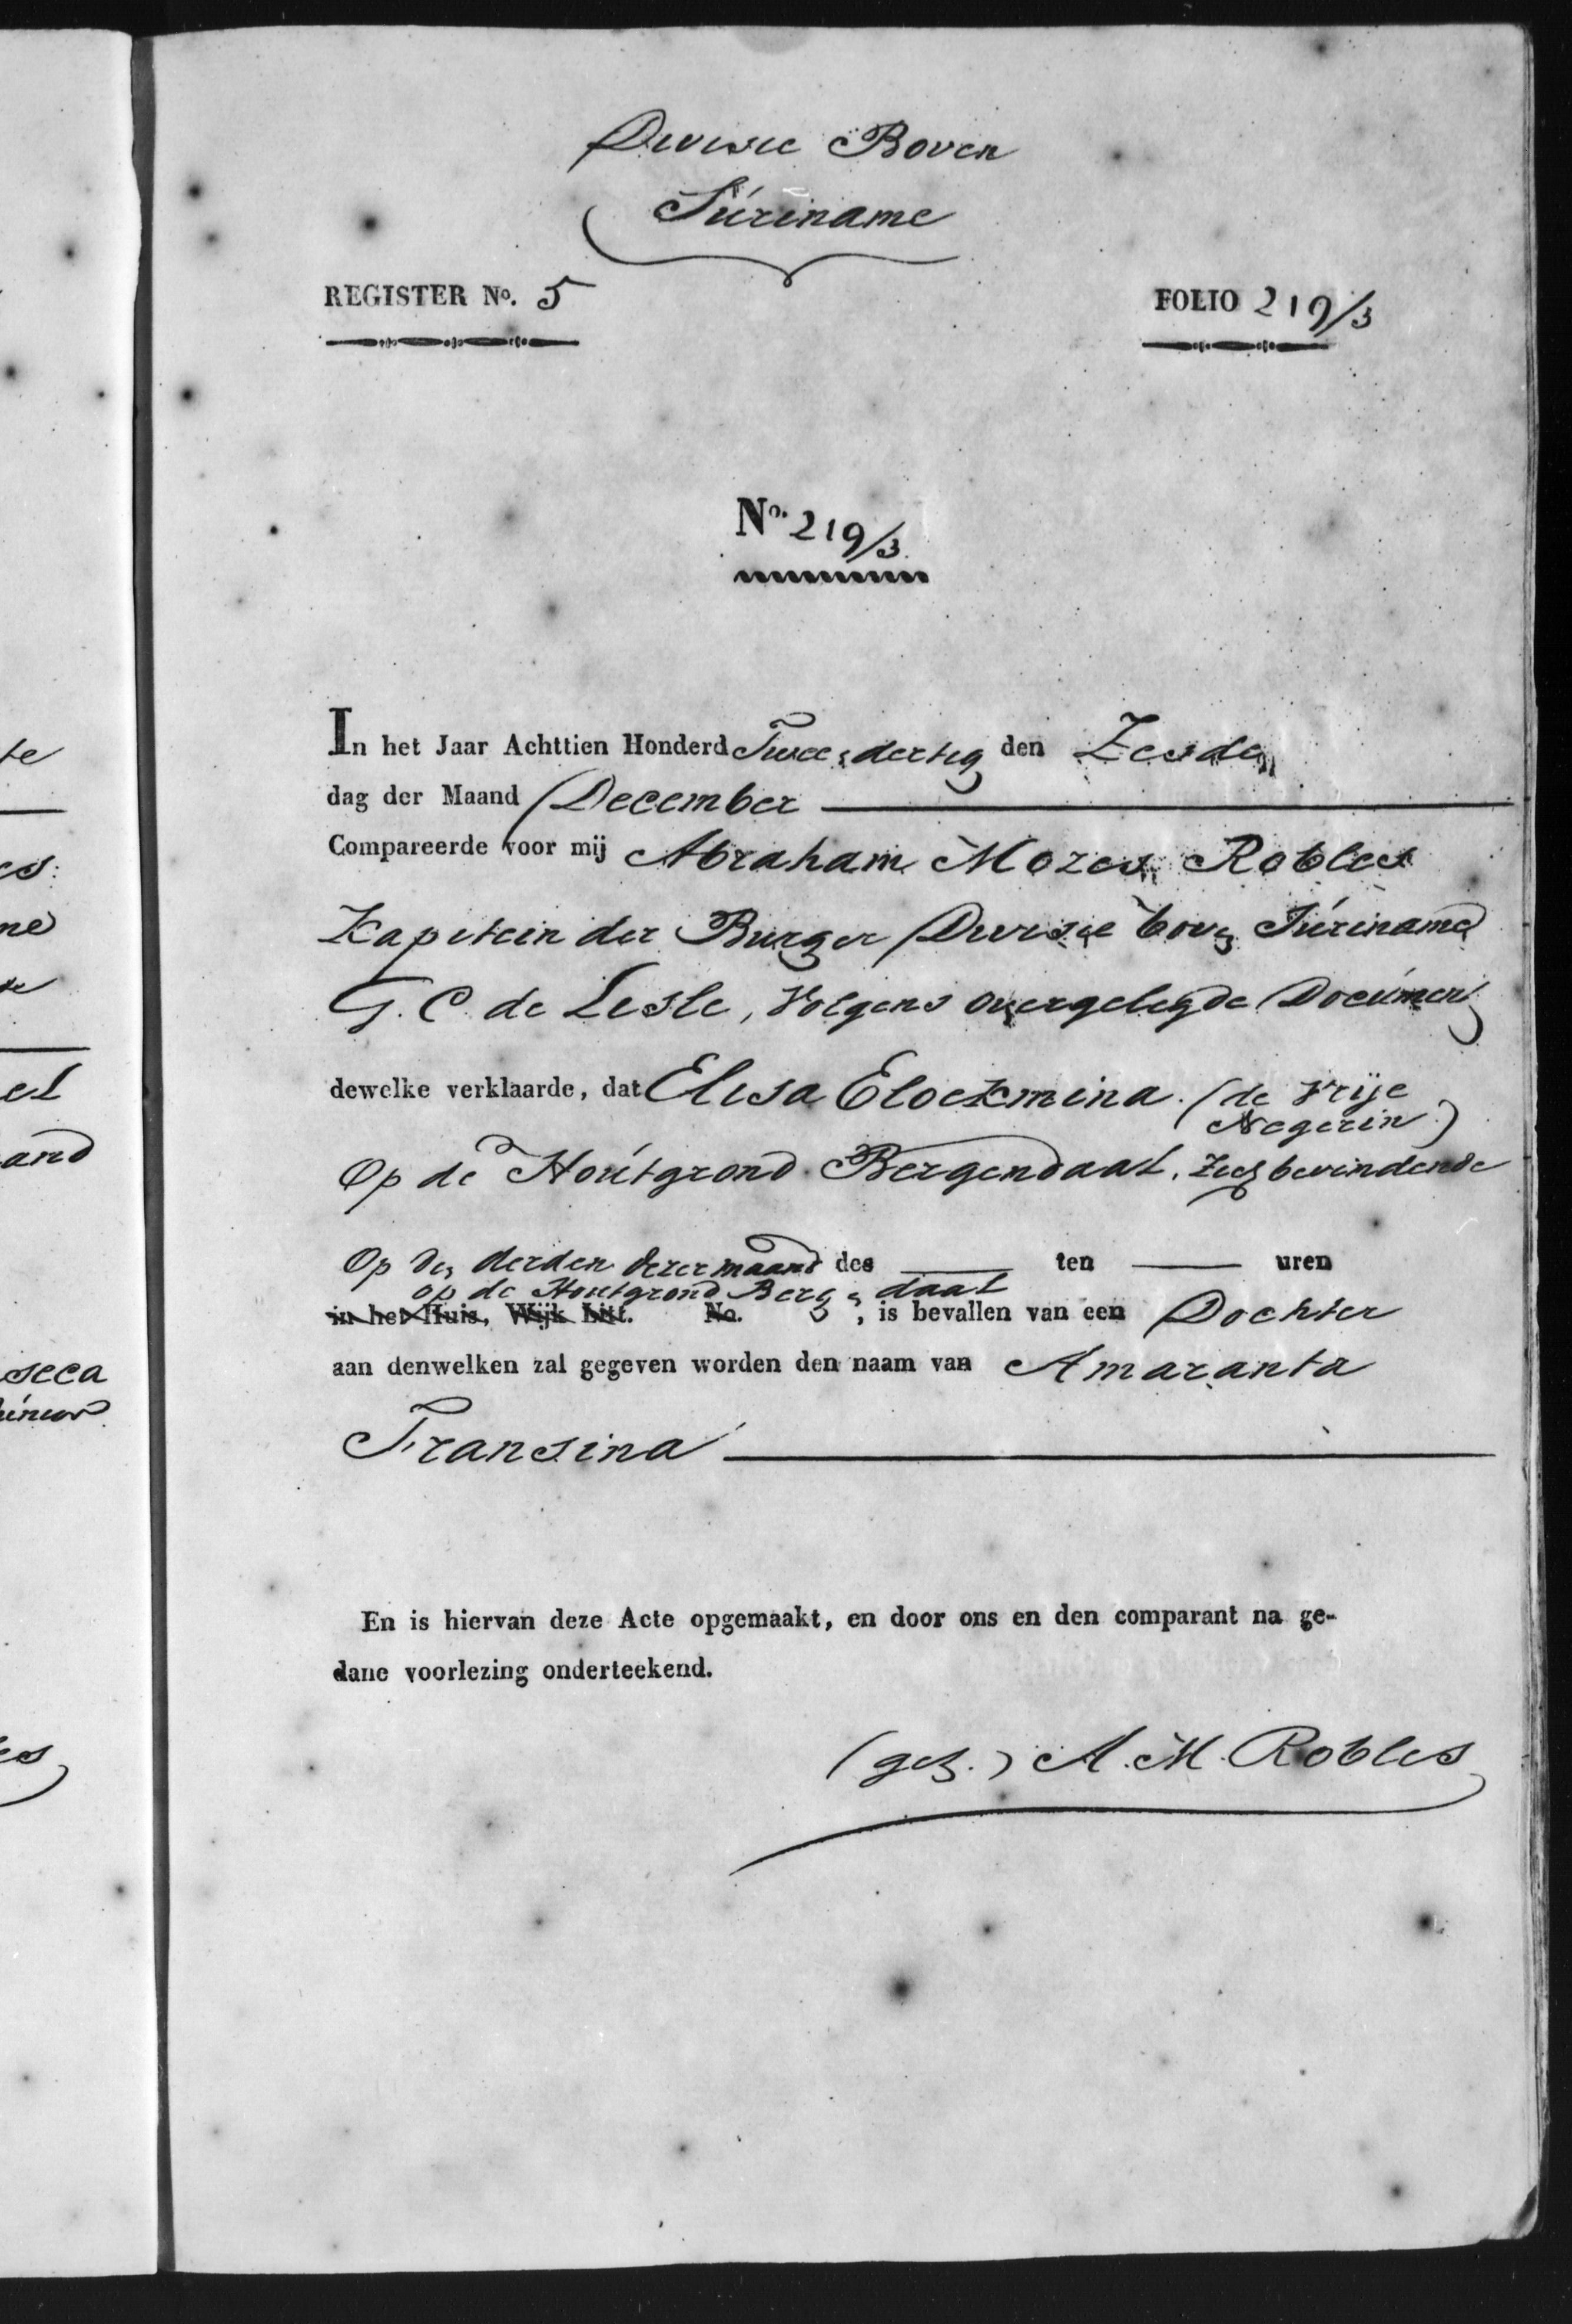 Divisie Boven
Suriname
REGISTER No. 5
FOLIO 219/3
No. 219/3
In het Jaar Achttien Honderd Twee & dertig den Zesden
dag der Maand December
Compareerde voor mij Abraham Mozes Robles
Kapitein der Burger Divisie bov Suriname
G. C. de Lesle, Volgens overgelegde Documen
dewelke verklaarde, dat Elisa Eloekmina (de Vrije
Negerin)
Op de Houtgrond Bergendaal, bevindende
Op den derden dezer maand des ten uren
op de Houtgrond Berg daal
in het Huis, Wijk Litt. No. , is bevallen van een Dochter
aan denwelken zal gegeven worden den naam van Amaranta
Fransina
En is hiervan deze Acte opgemaakt, en door ons en den comparant na ge-
dane voorlezing onderteekend.
(get.) A. M. Robles
te
es.
ne
el
and
seca
es